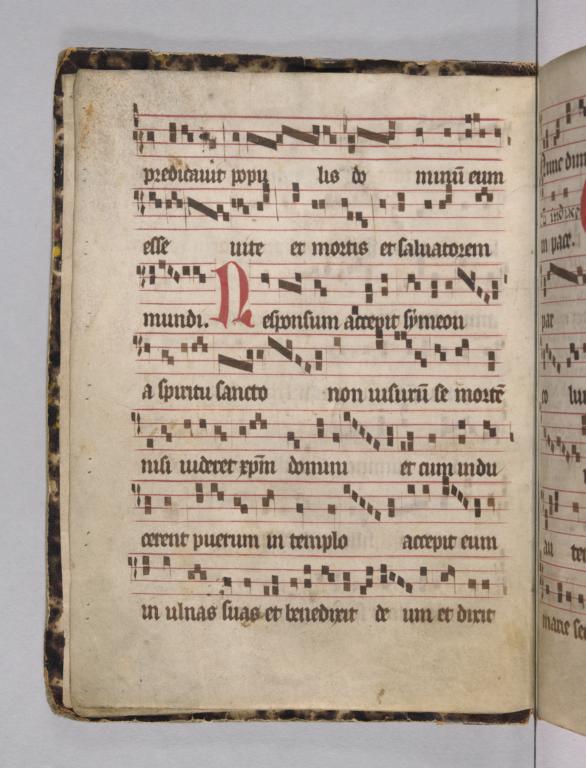 predicauit popu lis do minū eum
esse uite et mortis et saluatorem
mundi. Responsum accepit symeon
a spiritu sancto non uisurū se mortē
nisi uideret xpm̄ domini et cum indu
cerent puerum in templo accepit eum
in ulnas suas et benedixit de um et dixit
Nunc dim
in pace.
par
lu
au